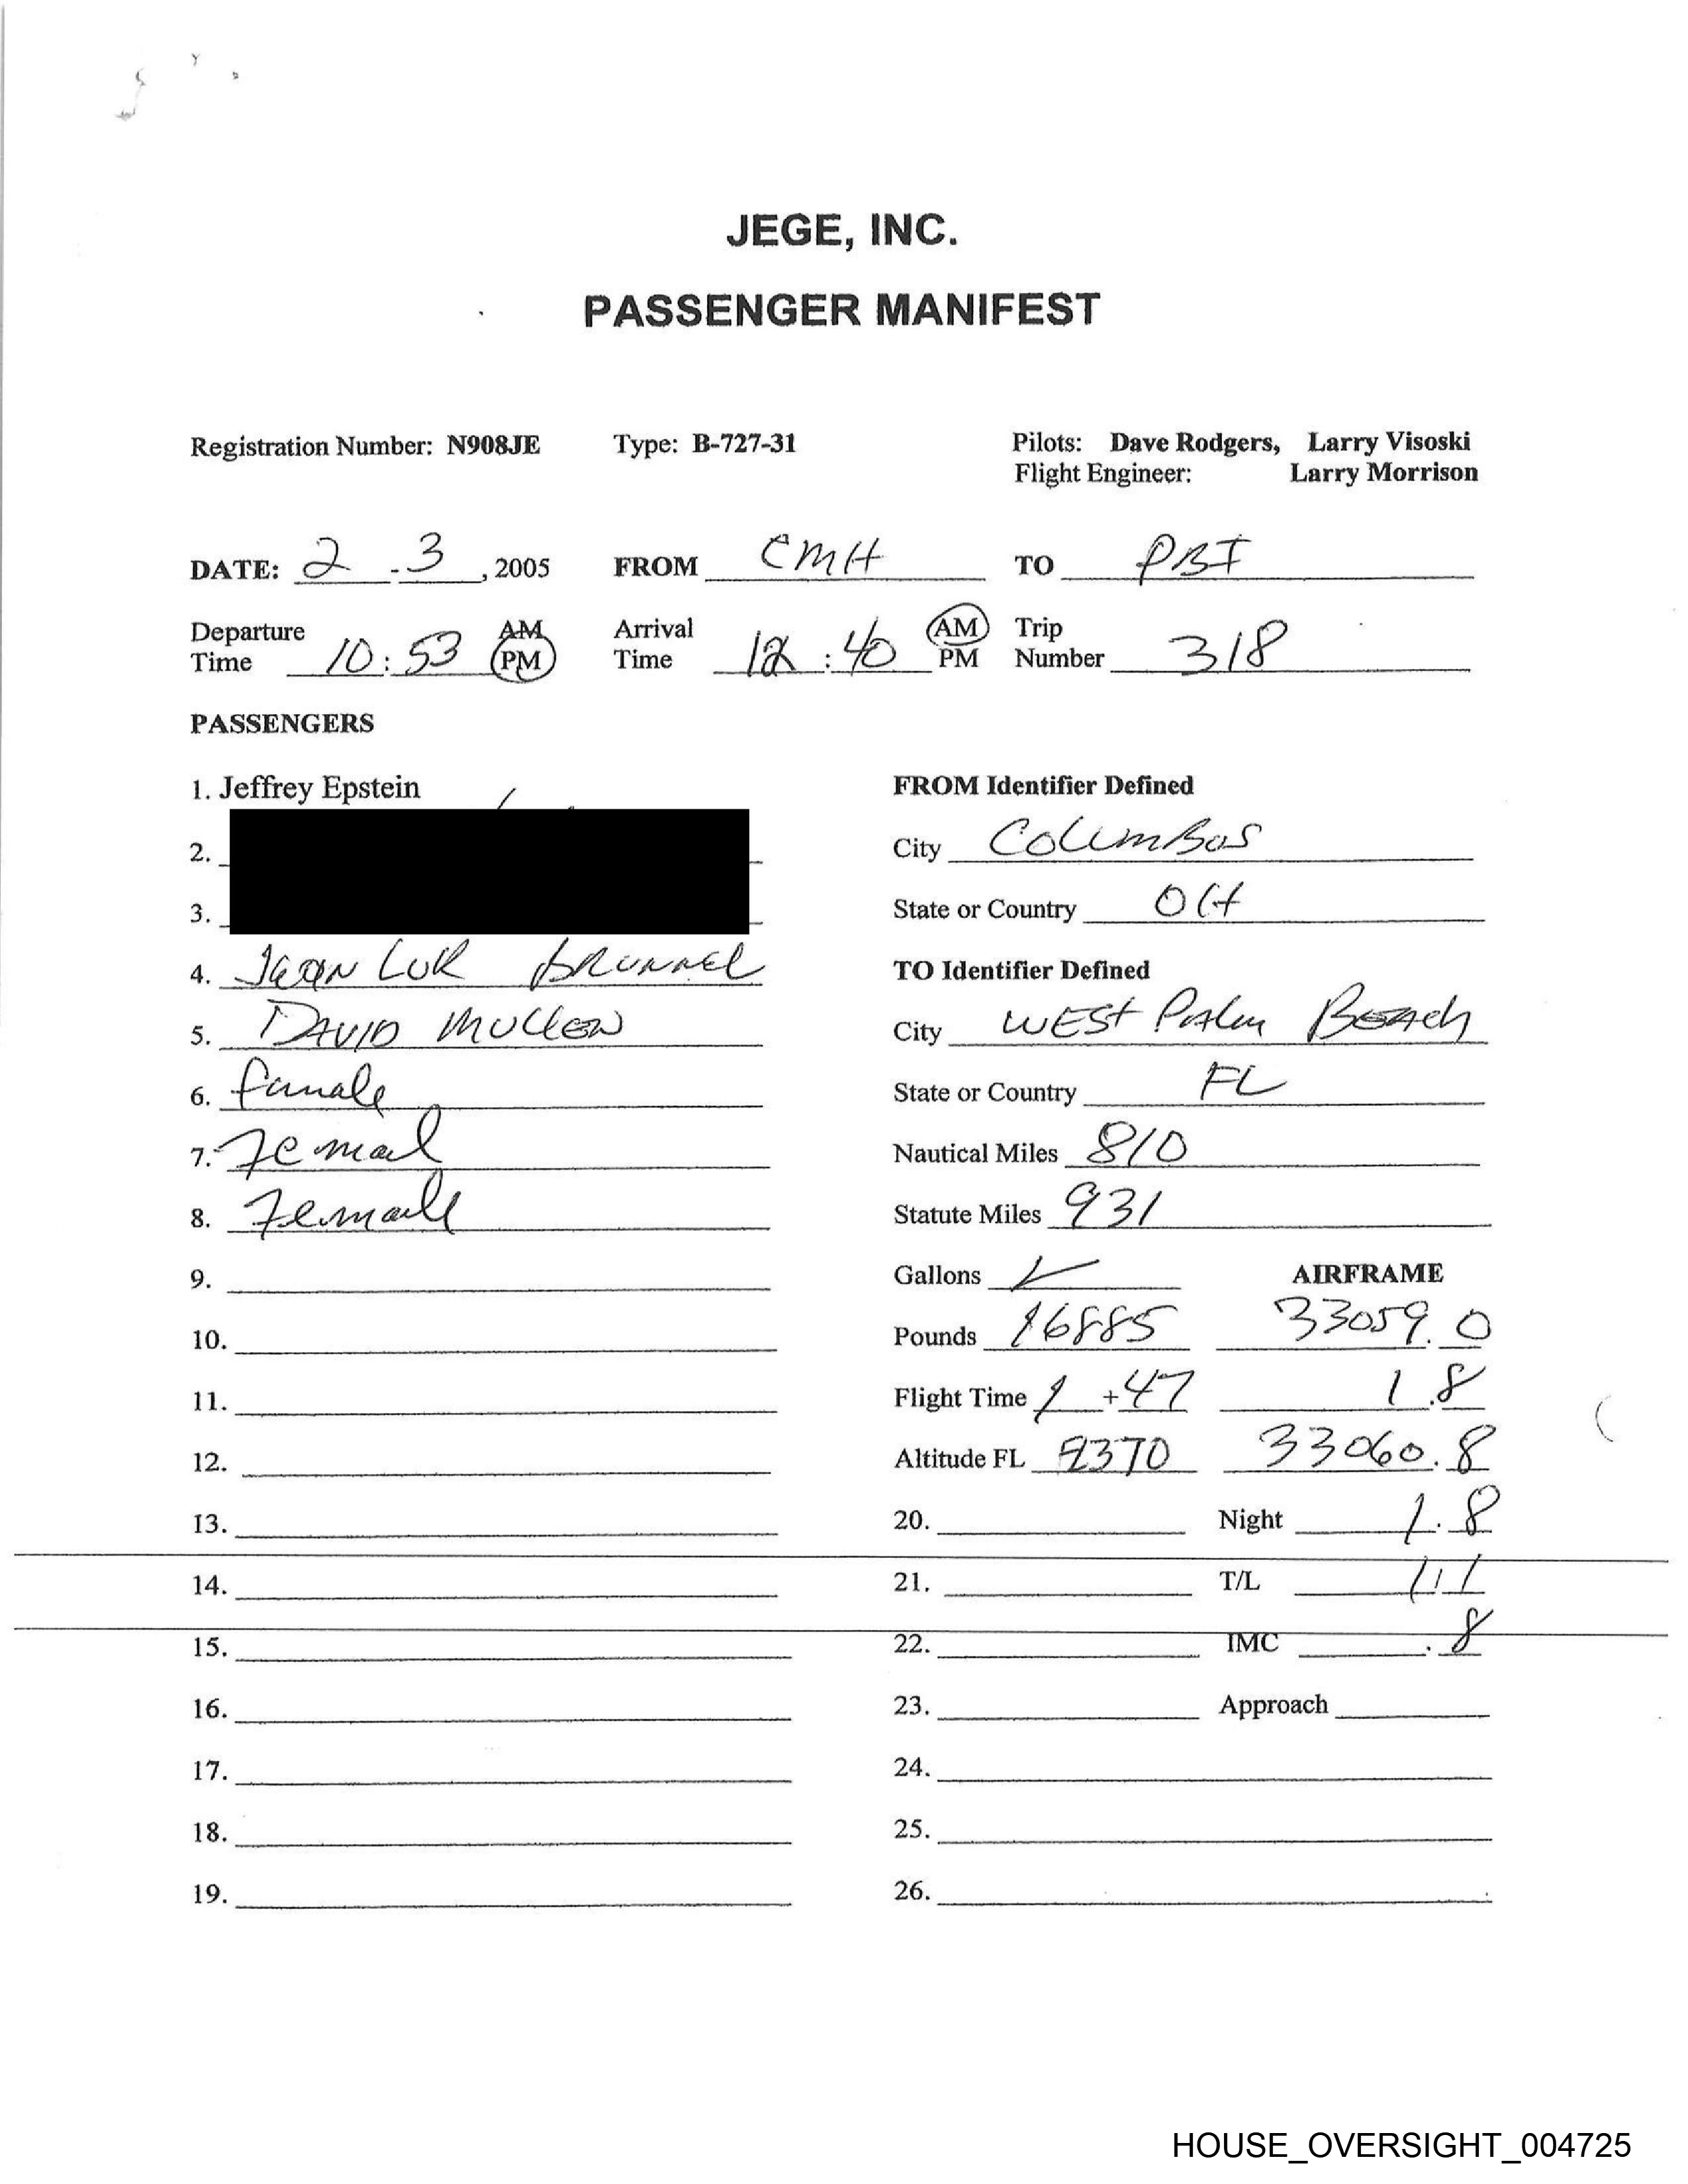 JEGE, INC.
PASSENGER MANIFEST
Registration Number: N908JE Type: B-727-31 Pilots: Dave Rodgers, Larry Visoski
Flight Engineer: Larry Morrison
DATE: 2 - 3, 2005 FROM CMH TO PBI
Departure Time 10:53 AM PM Arrival Time 12:40 AM PM Trip Number 318
PASSENGERS
1. Jeffrey Epstein FROM Identifier Defined
2. City Columbus
3. State or Country OH
4. Jean Luk Brunnel TO Identifier Defined
5. David Mullen City West Palm Beach
6. female State or Country FL
7. Femal Nautical Miles 810
8. Female Statute Miles 931
9. Gallons AIRFRAME
10. Pounds 16885 33059.0
11. Flight Time 1 + 47 1.8
12. Altitude FL 370 33060.8
13. 20. Night 1.8
14. 21. T/L 1/1
15. 22. IMC .8
16. 23. Approach
17. 24.
18. 25.
19. 26.
HOUSE_OVERSIGHT_004725